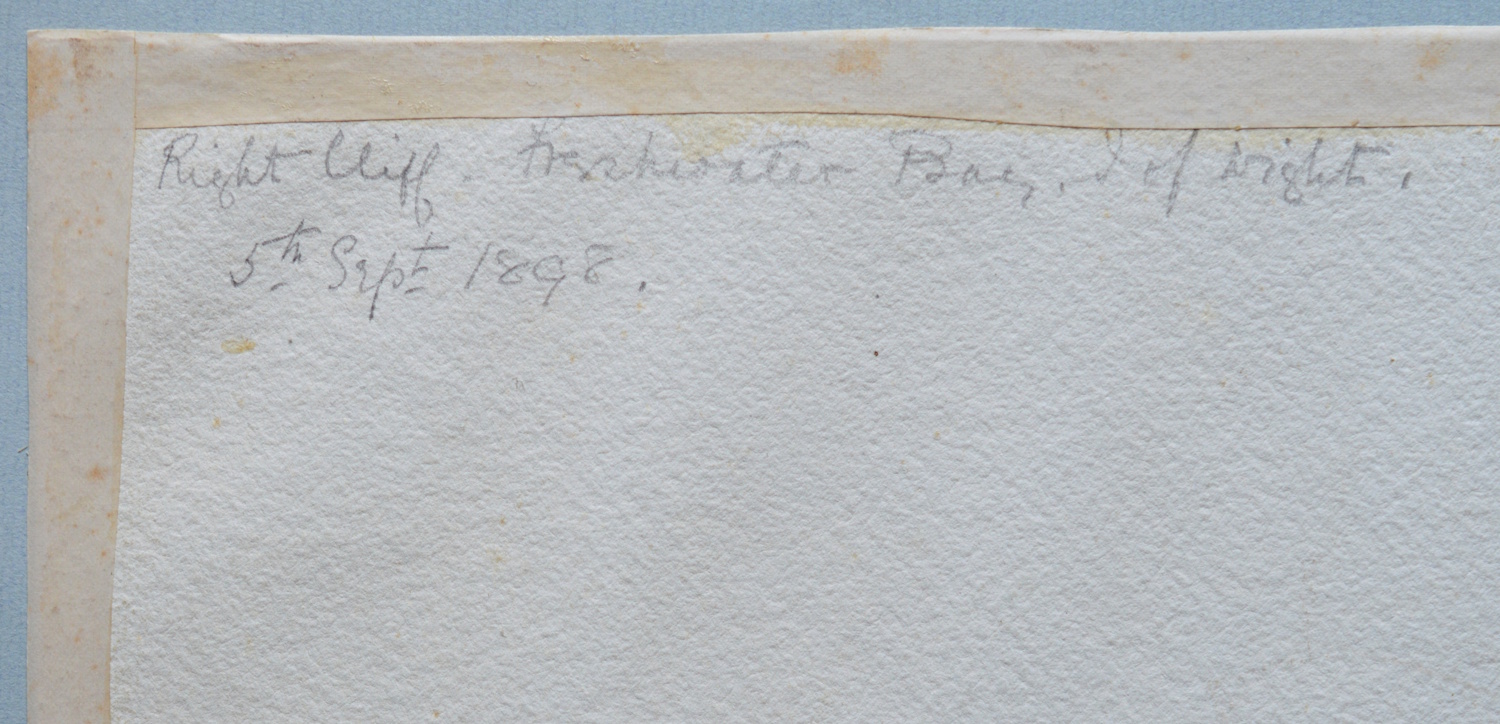 Right Cliff. Freshwater Bay, I of Wight.
5th Sept 1898.